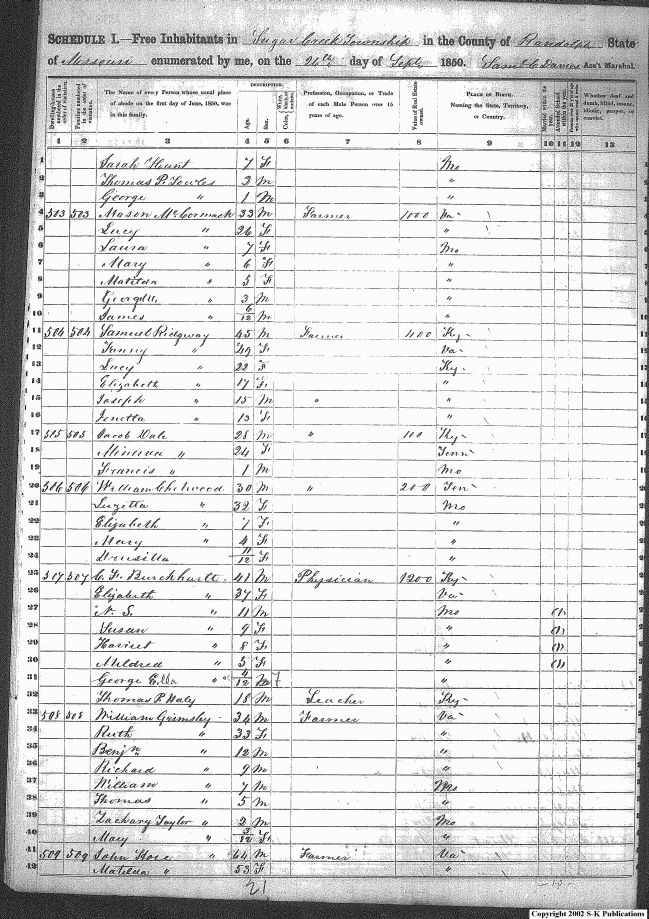 SCHEDULE I.—Free Inhabitants in Sugar Creek Township in the County of Randolph State
of Missouri enumerated by me, on the 24th day of Sept 1850. Saml C Davis Ass't Marshal.
Dwelling-houses numbered in the order of visitation.
Families numbered in the order of visitation.
The Name of every Person whose usual place of abode on the first day of June, 1850, was in this family.
DESCRIPTION.
Age.
Sex.
Color,
Profession, Occupation, or Trade of each Male Person over 15 years of age.
Value of Real Estate owned.
PLACE OF BIRTH. Naming the State, Territory, or Country.
Married within the year.
Attended School within the year.
Whether deaf and dumb, blind, insane, idiotic, pauper, or convict.
1 2 3 4 5 6 7 8 9 10 11 12 13
1 Sarah Hount 7 F Mo
2 Thomas P. Towles 3 M "
3 George " 1 M "
4 503 503 Mason McCormack 33 M Farmer 1000 Va
5 Lucy " 26 F "
6 Laura " 7 F Mo
7 Mary " 6 F "
8 Matilda " 5 F "
9 George " 3 M "
10 James " 6/12 M "
11 504 504 Samuel Ridgway 45 M Farmer 400 Ky
12 Fanny " 49 F Va
13 Lucy " 22 F Ky
14 Elizabeth " 17 F "
15 Joseph " 15 M " "
16 " 13 F "
17 505 505 Jacob Dale 28 M " 100 Ky
18 Minerva " 24 F Tenn
19 Francis " 1 M Mo
20 506 506 William Chetwood 30 M " 200 Ten
21 Luzetta " 32 F Mo
22 Elizabeth " 7 F "
23 Mary " 4 F "
24 Drusilla 11/12 F "
25 507 507 C. F. Burckhartt 41 M Physician 1200 Ky
26 Elizabeth " 37 F Va
27 N. S. " 11 M Mo (1)
28 Susan " 9 F " (1)
29 Harriet " 8 F " (1)
30 Mildred " 5 F " (1)
31 George Ella " 4/12 M F "
32 Thomas P. Haley 18 M Teacher Ky
33 508 508 William Grimsley 34 M Farmer Va
34 Ruth " 33 F "
35 Benjn " 12 M "
36 Richard " 9 M "
37 William " 7 M Mo
38 Thomas " 5 M "
39 Zachary Taylor " 2 M Mo
40 Mary " 3/12 F "
41 509 509 John Hore " 64 M Farmer Va
42 Matilda " 53 F "
21
Copyright 2002 S-K Publications